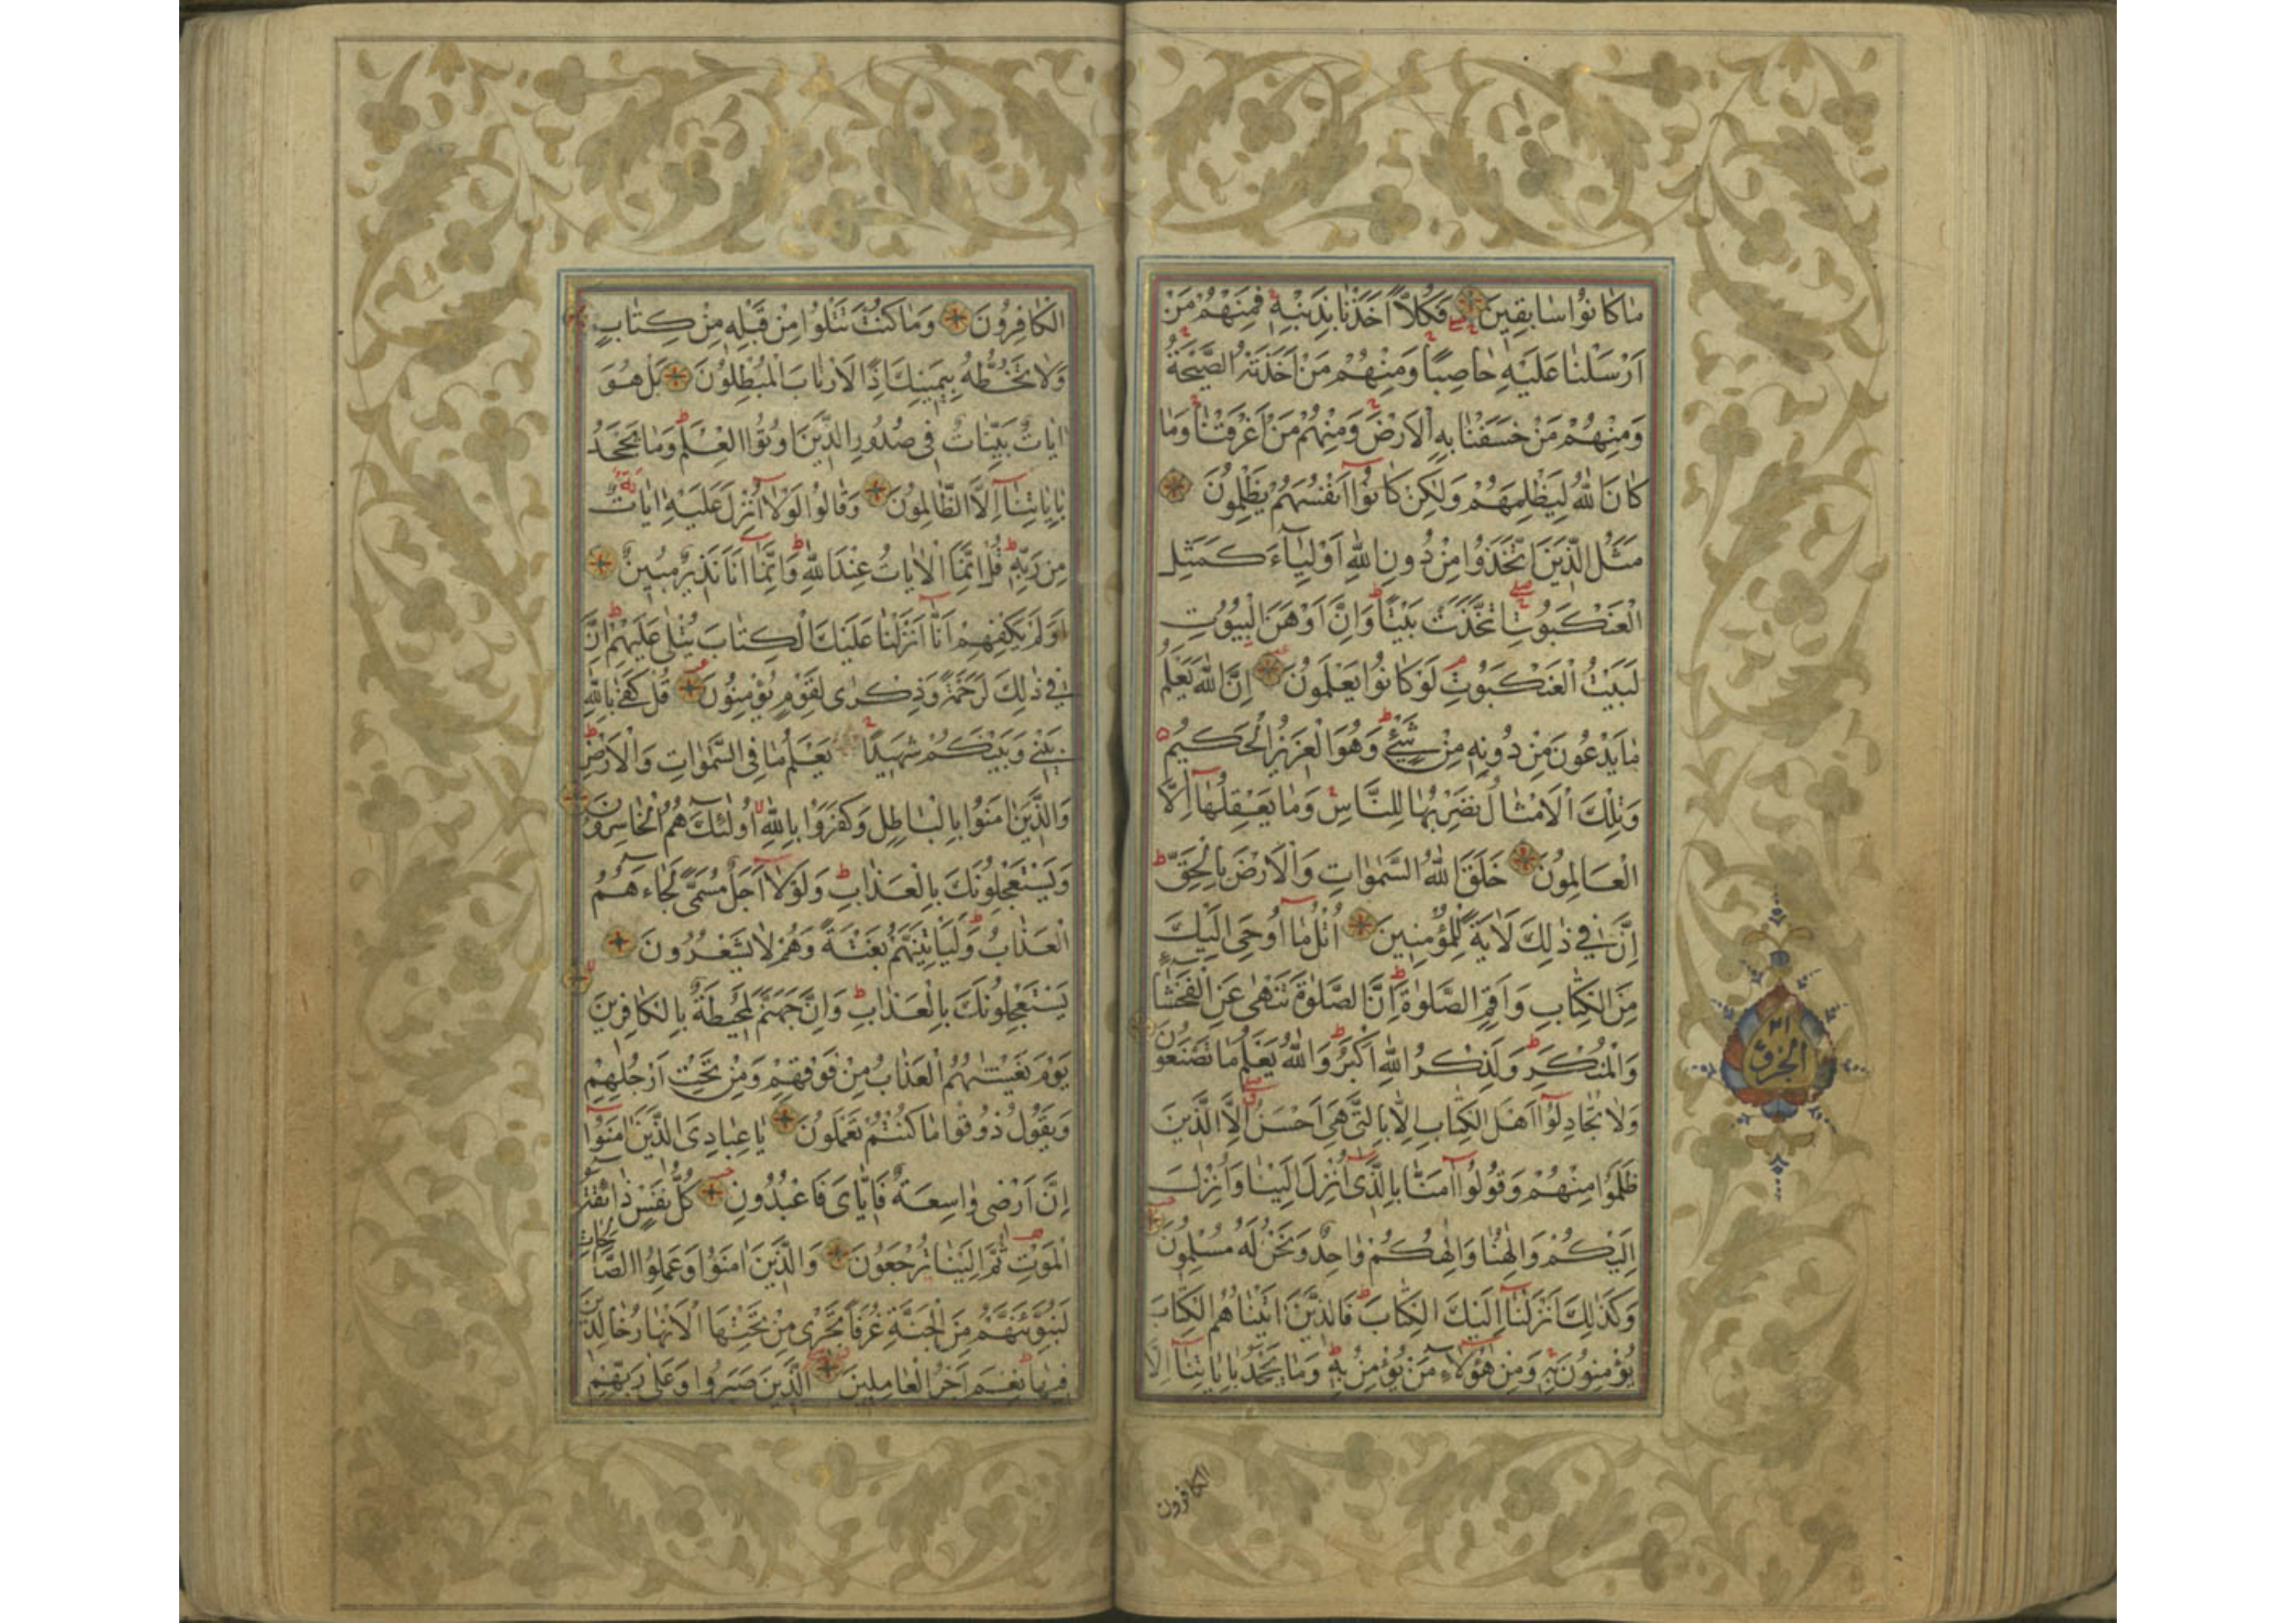 مَا كَانُوا سَابِقِينَ فَكُلًّا أَخَذْنَا بِذَنْبِهِ فَمِنْهُمْ مَنْ
اَرْسَلْنَا عَلَيْهِ حَاصِبًا وَمِنْهُمْ مَنْ اَخَذَتْهُ الصَّيْحَةُ
وَمِنْهُمْ مَنْ خَسَفْنَا بِهِ الْاَرْضَ وَمِنْهُمْ مَنْ اَغْرَقْنَا وَمَا
كَانَ اللهُ لِيَظْلِمَهُمْ وَلٰكِنْ كَانُوا اَنْفُسَهُمْ يَظْلِمُونَ
مَثَلُ الَّذِينَ اتَّخَذُوا مِنْ دُونِ اللهِ اَوْلِيَاءَ كَمَثَلِ
الْعَنْكَبُوتِ اتَّخَذَتْ بَيْتًا وَاِنَّ اَوْهَنَ الْبُيُوتِ
لَبَيْتُ الْعَنْكَبُوتِ لَوْ كَانُوا يَعْلَمُونَ اِنَّ اللهَ يَعْلَمُ
مَا يَدْعُونَ مِنْ دُونِهِ مِنْ شَيْءٍ وَهُوَ الْعَزِيزُ الْحَكِيمُ
وَتِلْكَ الْاَمْثَالُ نَضْرِبُهَا لِلنَّاسِ وَمَا يَعْقِلُهَا اِلَّا
الْعَالِمُونَ خَلَقَ اللهُ السَّمٰوَاتِ وَالْاَرْضَ بِالْحَقِّ
اِنَّ فِي ذٰلِكَ لَاٰيَةً لِلْمُؤْمِنِينَ اُتْلُ مَا اُوحِيَ اِلَيْكَ
مِنَ الْكِتَابِ وَاَقِمِ الصَّلٰوةَ اِنَّ الصَّلٰوةَ تَنْهٰى عَنِ الْفَحْشَاءِ
وَالْمُنْكَرِ وَلَذِكْرُ اللهِ اَكْبَرُ وَاللهُ يَعْلَمُ مَا تَصْنَعُونَ
وَلَا تُجَادِلُوا اَهْلَ الْكِتَابِ اِلَّا بِالَّتِي هِيَ اَحْسَنُ اِلَّا الَّذِينَ
ظَلَمُوا مِنْهُمْ وَقُولُوا اٰمَنَّا بِالَّذِي اُنْزِلَ اِلَيْنَا وَاُنْزِلَ
اِلَيْكُمْ وَاِلٰهُنَا وَاِلٰهُكُمْ وَاحِدٌ وَنَحْنُ لَهُ مُسْلِمُونَ
وَكَذٰلِكَ اَنْزَلْنَا اِلَيْكَ الْكِتَابَ فَالَّذِينَ اٰتَيْنَاهُمُ الْكِتَابَ
يُؤْمِنُونَ بِهِ وَمِنْ هٰؤُلَاءِ مَنْ يُؤْمِنُ بِهِ وَمَا يَجْحَدُ بِاٰيَاتِنَا اِلَّا
الكافرون
الجزؤ
٢١
الْكَافِرُونَ وَمَا كُنْتَ تَتْلُوا مِنْ قَبْلِهِ مِنْ كِتَابٍ
وَلَا تَخُطُّهُ بِيَمِينِكَ اِذًا لَارْتَابَ الْمُبْطِلُونَ بَلْ هُوَ
اٰيَاتٌ بَيِّنَاتٌ فِي صُدُورِ الَّذِينَ اُوتُوا الْعِلْمَ وَمَا يَجْحَدُ
بِاٰيَاتِنَا اِلَّا الظَّالِمُونَ وَقَالُوا لَوْلَا اُنْزِلَ عَلَيْهِ اٰيَاتٌ
مِنْ رَبِّهِ قُلْ اِنَّمَا الْاٰيَاتُ عِنْدَ اللهِ وَاِنَّمَا اَنَا نَذِيرٌ مُبِينٌ
اَوَلَمْ يَكْفِهِمْ اَنَّا اَنْزَلْنَا عَلَيْكَ الْكِتَابَ يُتْلٰى عَلَيْهِمْ اِنَّ
فِي ذٰلِكَ لَرَحْمَةً وَذِكْرٰى لِقَوْمٍ يُؤْمِنُونَ قُلْ كَفٰى بِاللهِ
بَيْنِي وَبَيْنَكُمْ شَهِيدًا يَعْلَمُ مَا فِي السَّمٰوَاتِ وَالْاَرْضِ
وَالَّذِينَ اٰمَنُوا بِالْبَاطِلِ وَكَفَرُوا بِاللهِ اُولٰئِكَ هُمُ الْخَاسِرُونَ
وَيَسْتَعْجِلُونَكَ بِالْعَذَابِ وَلَوْلَا اَجَلٌ مُسَمًّى لَجَاءَهُمُ
الْعَذَابُ وَلَيَأْتِيَنَّهُمْ بَغْتَةً وَهُمْ لَا يَشْعُرُونَ
يَسْتَعْجِلُونَكَ بِالْعَذَابِ وَاِنَّ جَهَنَّمَ لَمُحِيطَةٌ بِالْكَافِرِينَ
يَوْمَ يَغْشٰيهُمُ الْعَذَابُ مِنْ فَوْقِهِمْ وَمِنْ تَحْتِ اَرْجُلِهِمْ
وَيَقُولُ ذُوقُوا مَا كُنْتُمْ تَعْمَلُونَ يَا عِبَادِيَ الَّذِينَ اٰمَنُوا
اِنَّ اَرْضِي وَاسِعَةٌ فَاِيَّايَ فَاعْبُدُونِ كُلُّ نَفْسٍ ذَائِقَةُ
الْمَوْتِ ثُمَّ اِلَيْنَا تُرْجَعُونَ وَالَّذِينَ اٰمَنُوا وَعَمِلُوا الصَّالِحَاتِ
لَنُبَوِّئَنَّهُمْ مِنَ الْجَنَّةِ غُرَفًا تَجْرِي مِنْ تَحْتِهَا الْاَنْهَارُ خَالِدِينَ
فِيهَا نِعْمَ اَجْرُ الْعَامِلِينَ الَّذِينَ صَبَرُوا وَعَلٰى رَبِّهِمْ